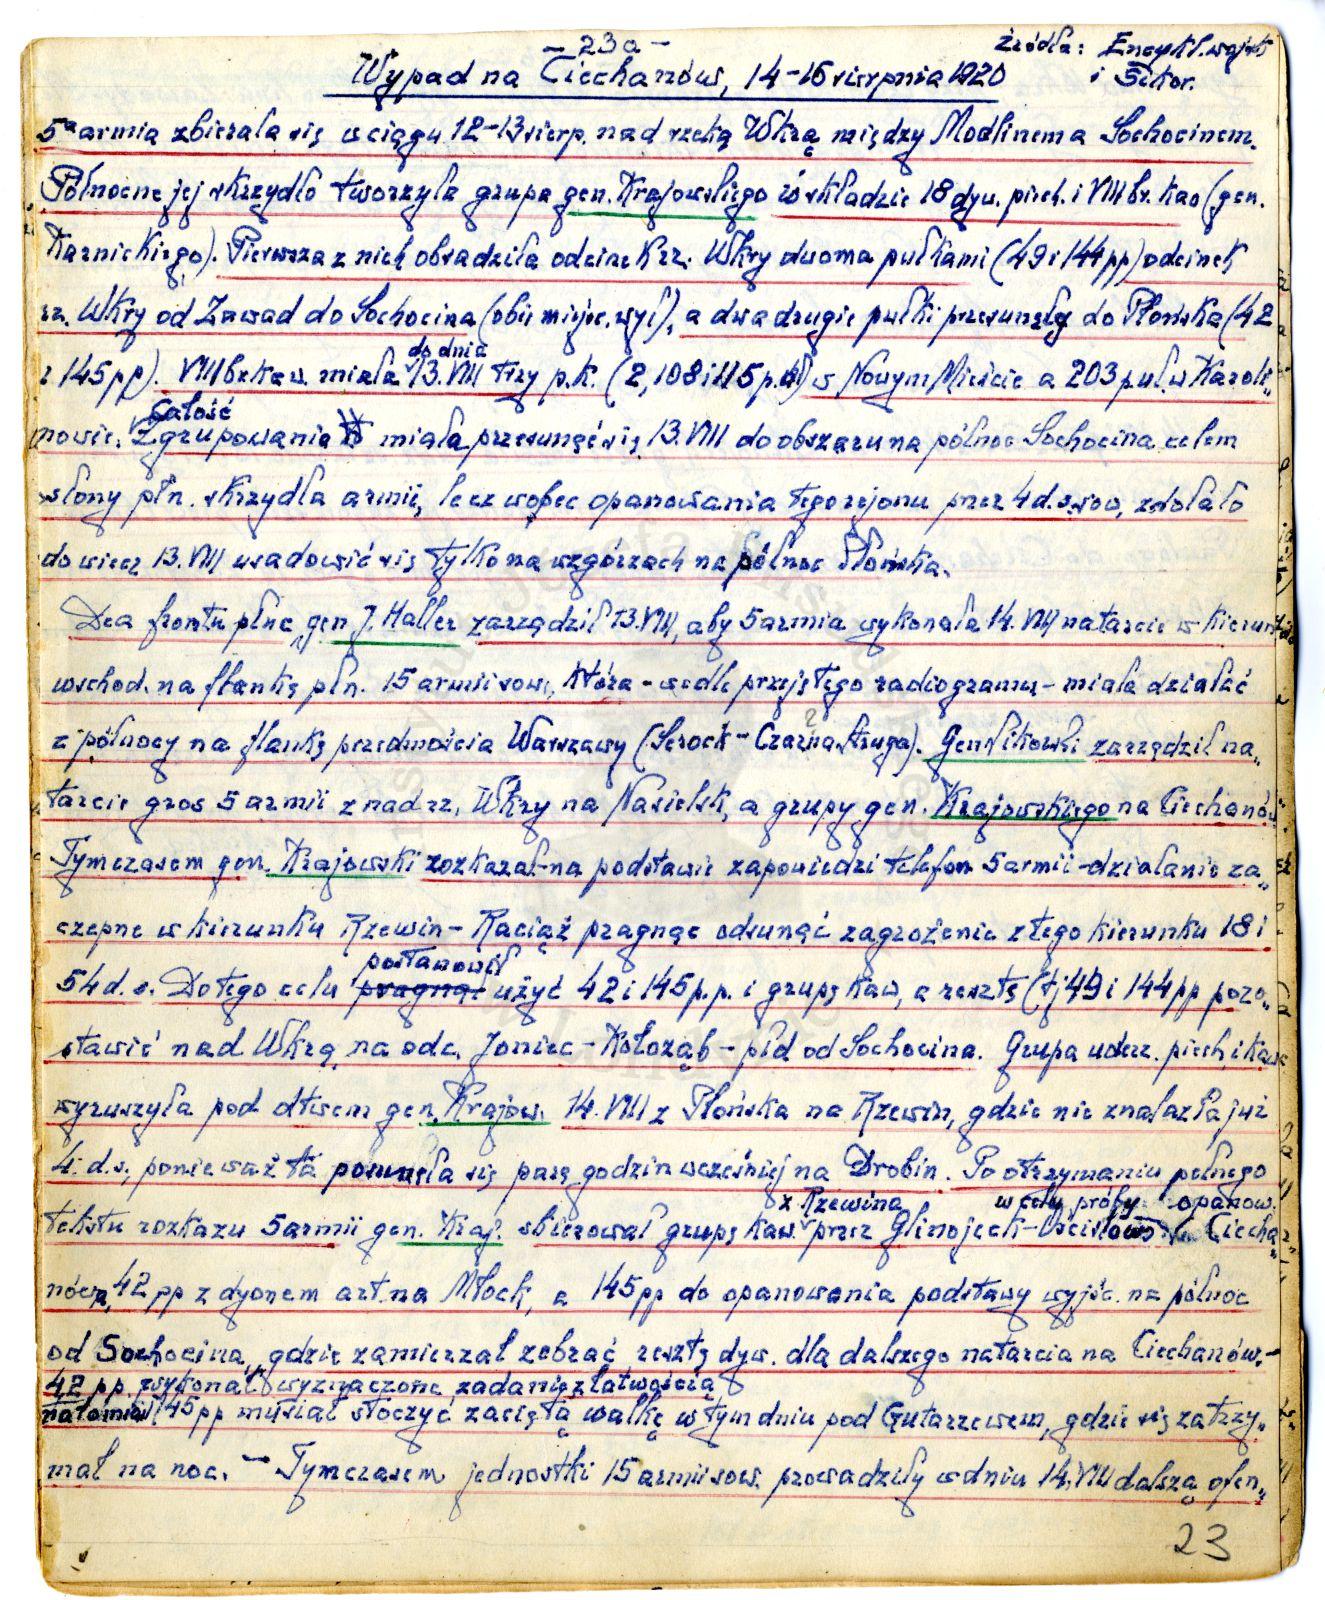 - 23a -
źródła: Encykl. wojsk
i Sikor.
Wypad na Ciechanów, 14-16 sierpnia 1920
5a armia zbierała się w ciągu 12-13 sierp. nad rzeką Wkrą między Modlinem a Sochocinem.
Północne jej skrzydło tworzyła grupa gen. Krajowskiego w składzie 18 dyw. piech. i VIII br. kaw (gen.
Karnickiego). Pierwsza z nich obsadziła odcinek rz. Wkry dwoma pułkami (49 i 144 pp) odcinek
rz. Wkry od Zawad do Sochocina (obie miejsc. wył), a dwa drugie pułki przesunęły do Płońska (42
i 145 pp). VIII br. kaw. miała do dnia 13.VIII trzy p.k. (2, 108 i 115 p.uł) w Nowym Mieście a 203 p.uł w Karoli„
nowie. Całość Zgrupowania miała przesunąć się 13.VIII do obszaru na północ Sochocina celem
osłony płn. skrzydła armii, lecz wobec opanowania tego rejonu przez 4 d.s. sow, zdołało
do wiecz 13.VIII usadowić się tylko na wzgórzach na północ Płońska.
Dca frontu płnc gen J. Haller zarządził 13.VIII, aby 5 armia wykonała 14.VIII natarcie w kierun
wschod. na flankę płn. 15 armii sow, która - wedle przejętego radiogramu - miała działać
z północy na flankę przedmościa Warszawy (Serock - Czarna Struga). Gen Sikorski zarządził na„
tarcie gros 5 armii z nad rz. Wkry na Nasielsk, a grupy gen. Krajowskiego na Ciechanów
Tymczasem gen. Krajowski rozkazał - na podstawie zapowiedzi telefon 5 armii - działanie za„
czepne w kierunku Rzewin - Raciąż pragnąc odsunąć zagrożenie z tego kierunku 18 i
54 d. s. Do tego celu pragnąc postanowił użyć 42 i 145 p.p. i grupę kaw, a resztę (tj 49 i 144 pp pozo„
stawić nad Wkrą na odc. Joniec - Kołoząb - płd od Sochocina. Grupa uderz. piech. i kaw
wyruszyła pod dtwem gen. Krajow. 14.VIII z Płońska na Rzewin, gdzie nie znalazła już
4. d.s, ponieważ ta posunęła się parę godzin wcześniej na Drobin. Po otrzymaniu pełnego
tekstu rozkazu 5 armii gen. Kraj. skierował grupę kaw. z Rzewina przez Glinojeck - Ościsłowo w celu próby opanow. Ciecha„
nowa, 42 pp z dyonem art. na Młock, a 145 pp do opanowania podstawy wyjśc. na północ
od Sochocina, gdzie zamierzał zebrać resztę dyw. dla dalszego natarcia na Ciechanów.
42 pp. wykonał wyznaczone zadanie z łatwością
natomiast 145 pp musiał stoczyć zaciętą walkę w tym dniu pod Gutarzewem, gdzie się zatrzy„
mał na noc. - Tymczasem jednostki 15 armii sow. prowadziły w dniu 14.VIII dalszą ofen„
23